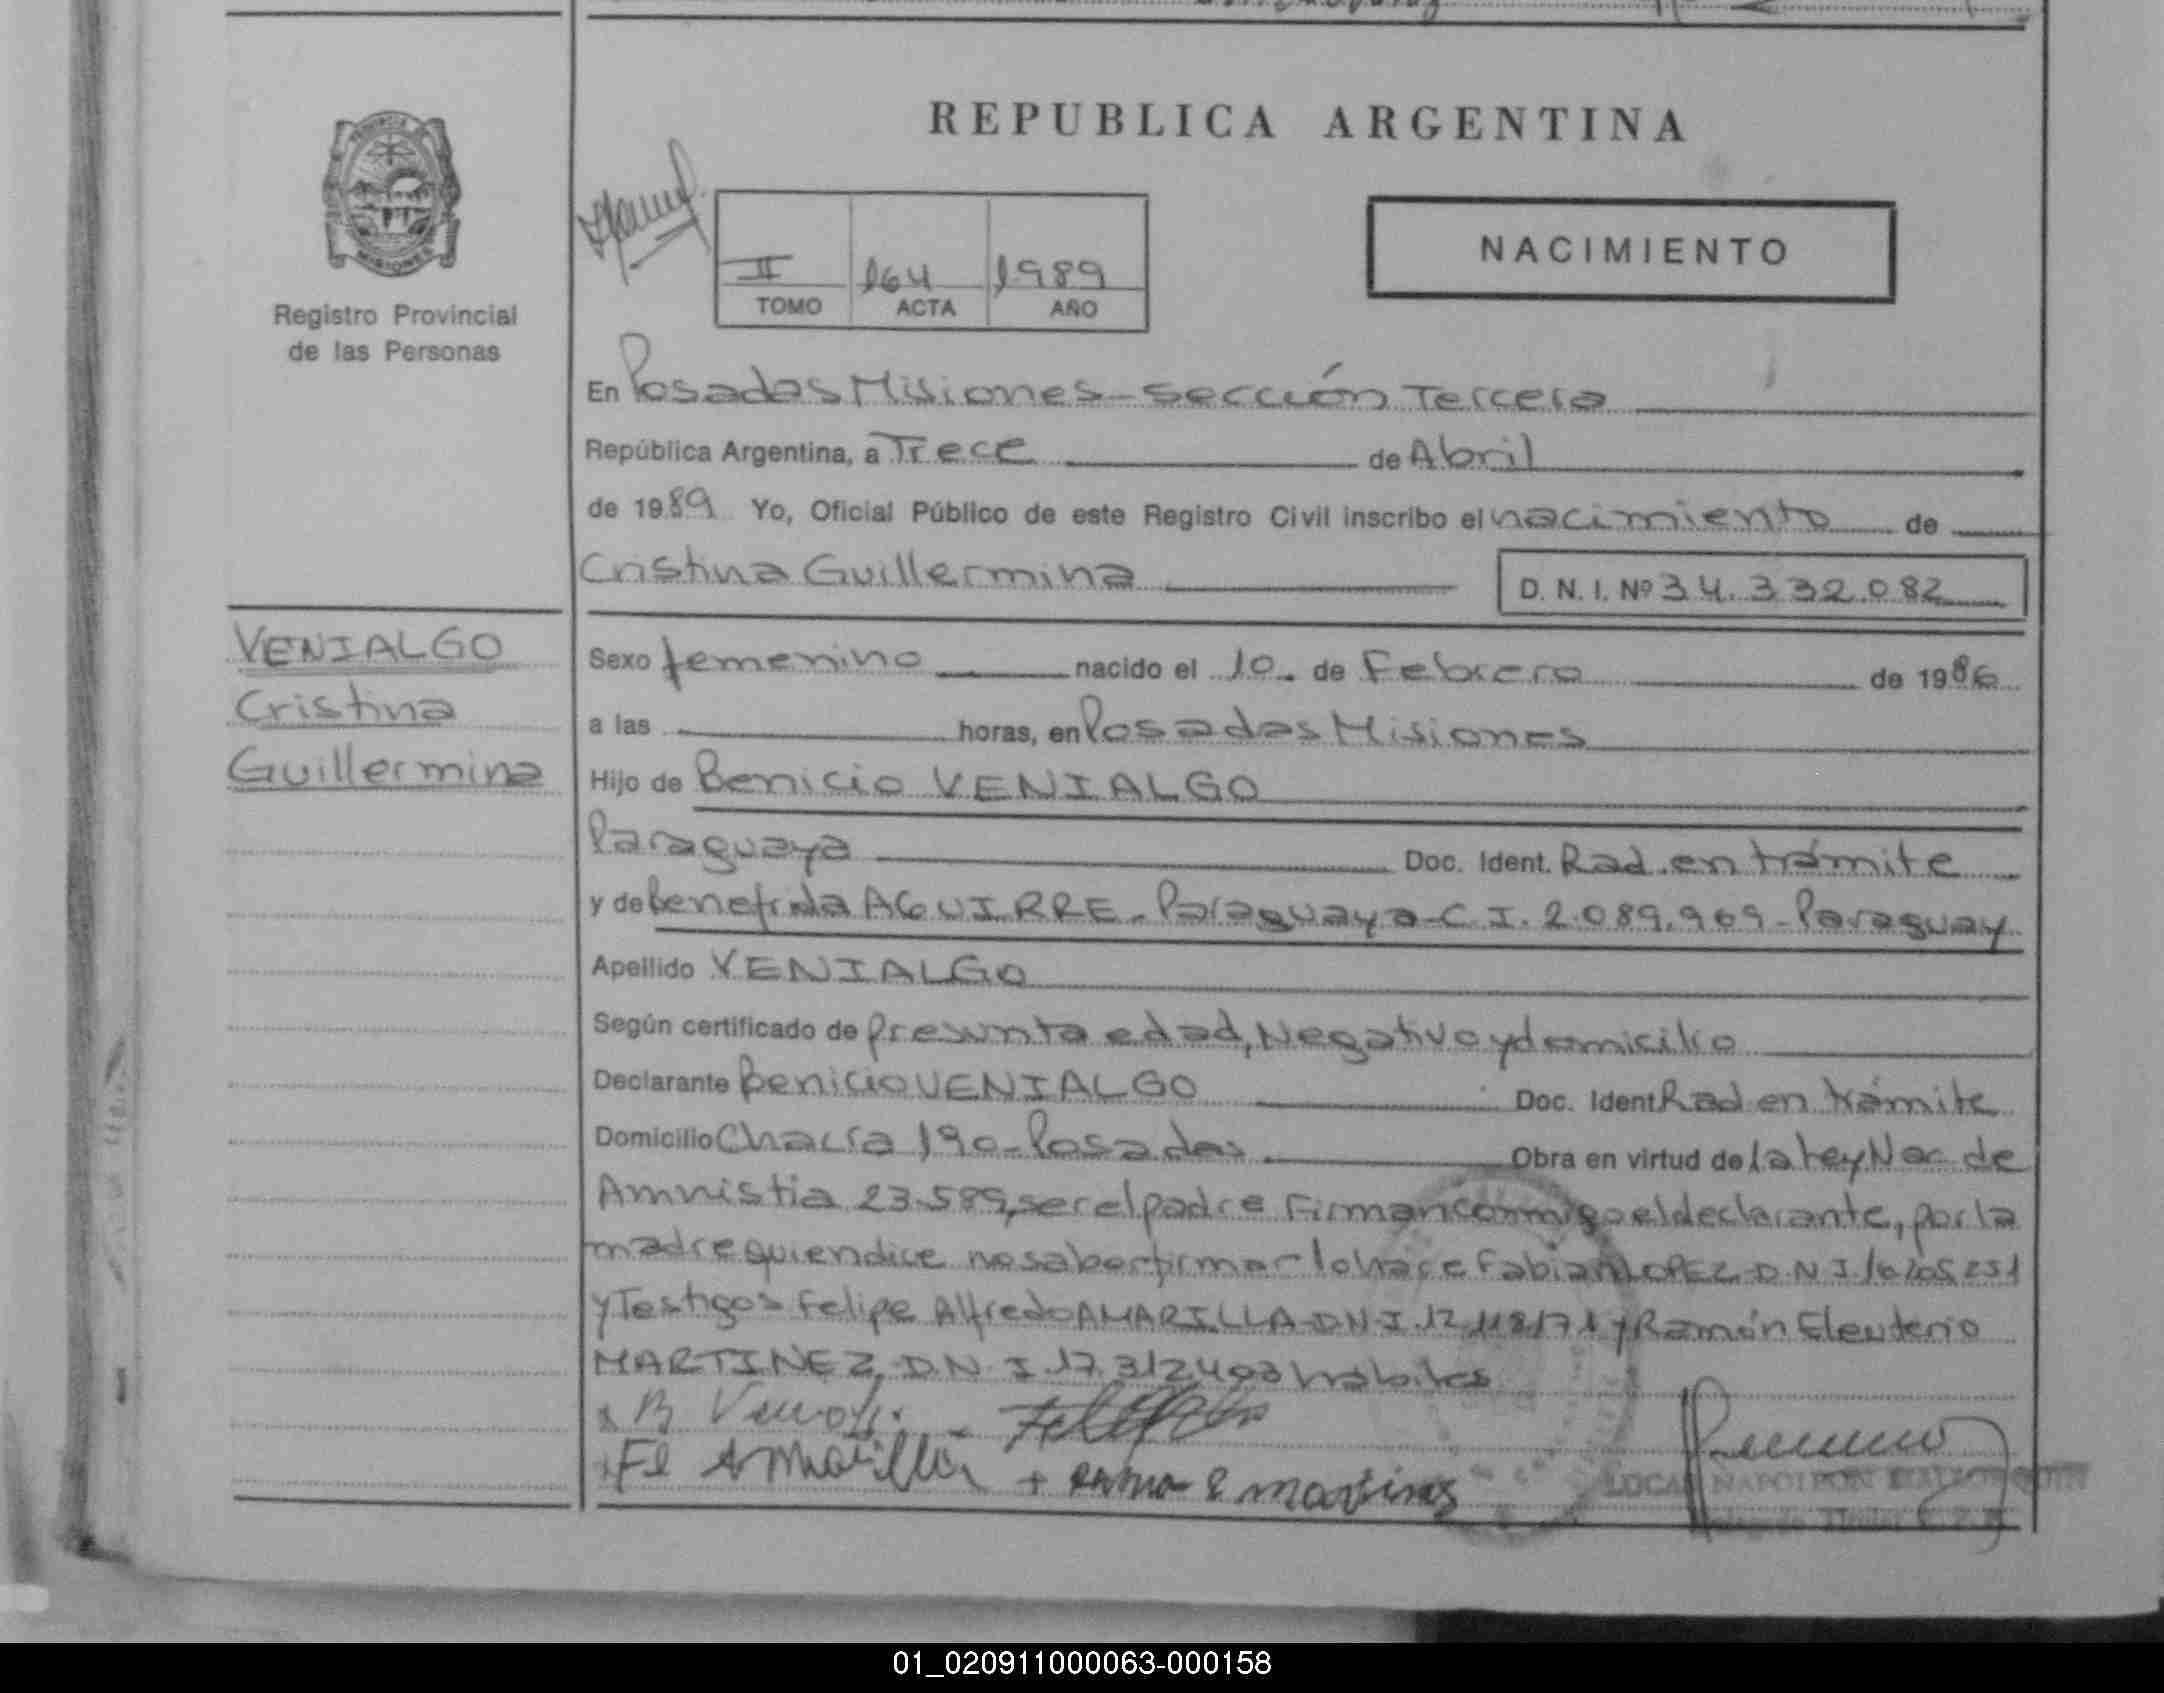 REPUBLICA ARGENTINA
PROVINCIA DE
MISIONES
Registro Provincial
de las Personas
II 164 1989
TOMO ACTA AÑO
NACIMIENTO
En Posadas Misiones - Sección Tercera
República Argentina, a Trece de Abril
de 1989 Yo, Oficial Público de este Registro Civil inscribo el nacimiento de
Cristina Guillermina D. N. I. Nº 34.332.082
VENIALGO
Cristina
Guillermina
Sexo femenino nacido el 10 de Febrero de 1986
a las horas, en Posadas Misiones
Hijo de Benicio VENIALGO
Paraguaya Doc. Ident. Rad. en trámite
y de Benefrida AGUIRRE - Paraguaya - C.I. 2.089.969 - Paraguay
Apellido VENIALGO
Según certificado de Presunta edad, Negativo y domicilio
Declarante Benicio VENIALGO Doc. Ident. Rad en trámite
Domicilio Chacra 190 - Posadas Obra en virtud de la Ley Nac. de
Amnistia 23.589, ser el padre Firman conmigo el declarante, por la
madre quien dice no saber firmar lo hace Fabian LOPEZ D.N.I.
y Testigos Felipe Alfredo AMARILLA D.N.I. y Ramón Eleuterio
MARTINEZ, D.N.I. habiles
Fe Amarilla + Ramon E martines
NAPOLEON
01_020911000063-000158